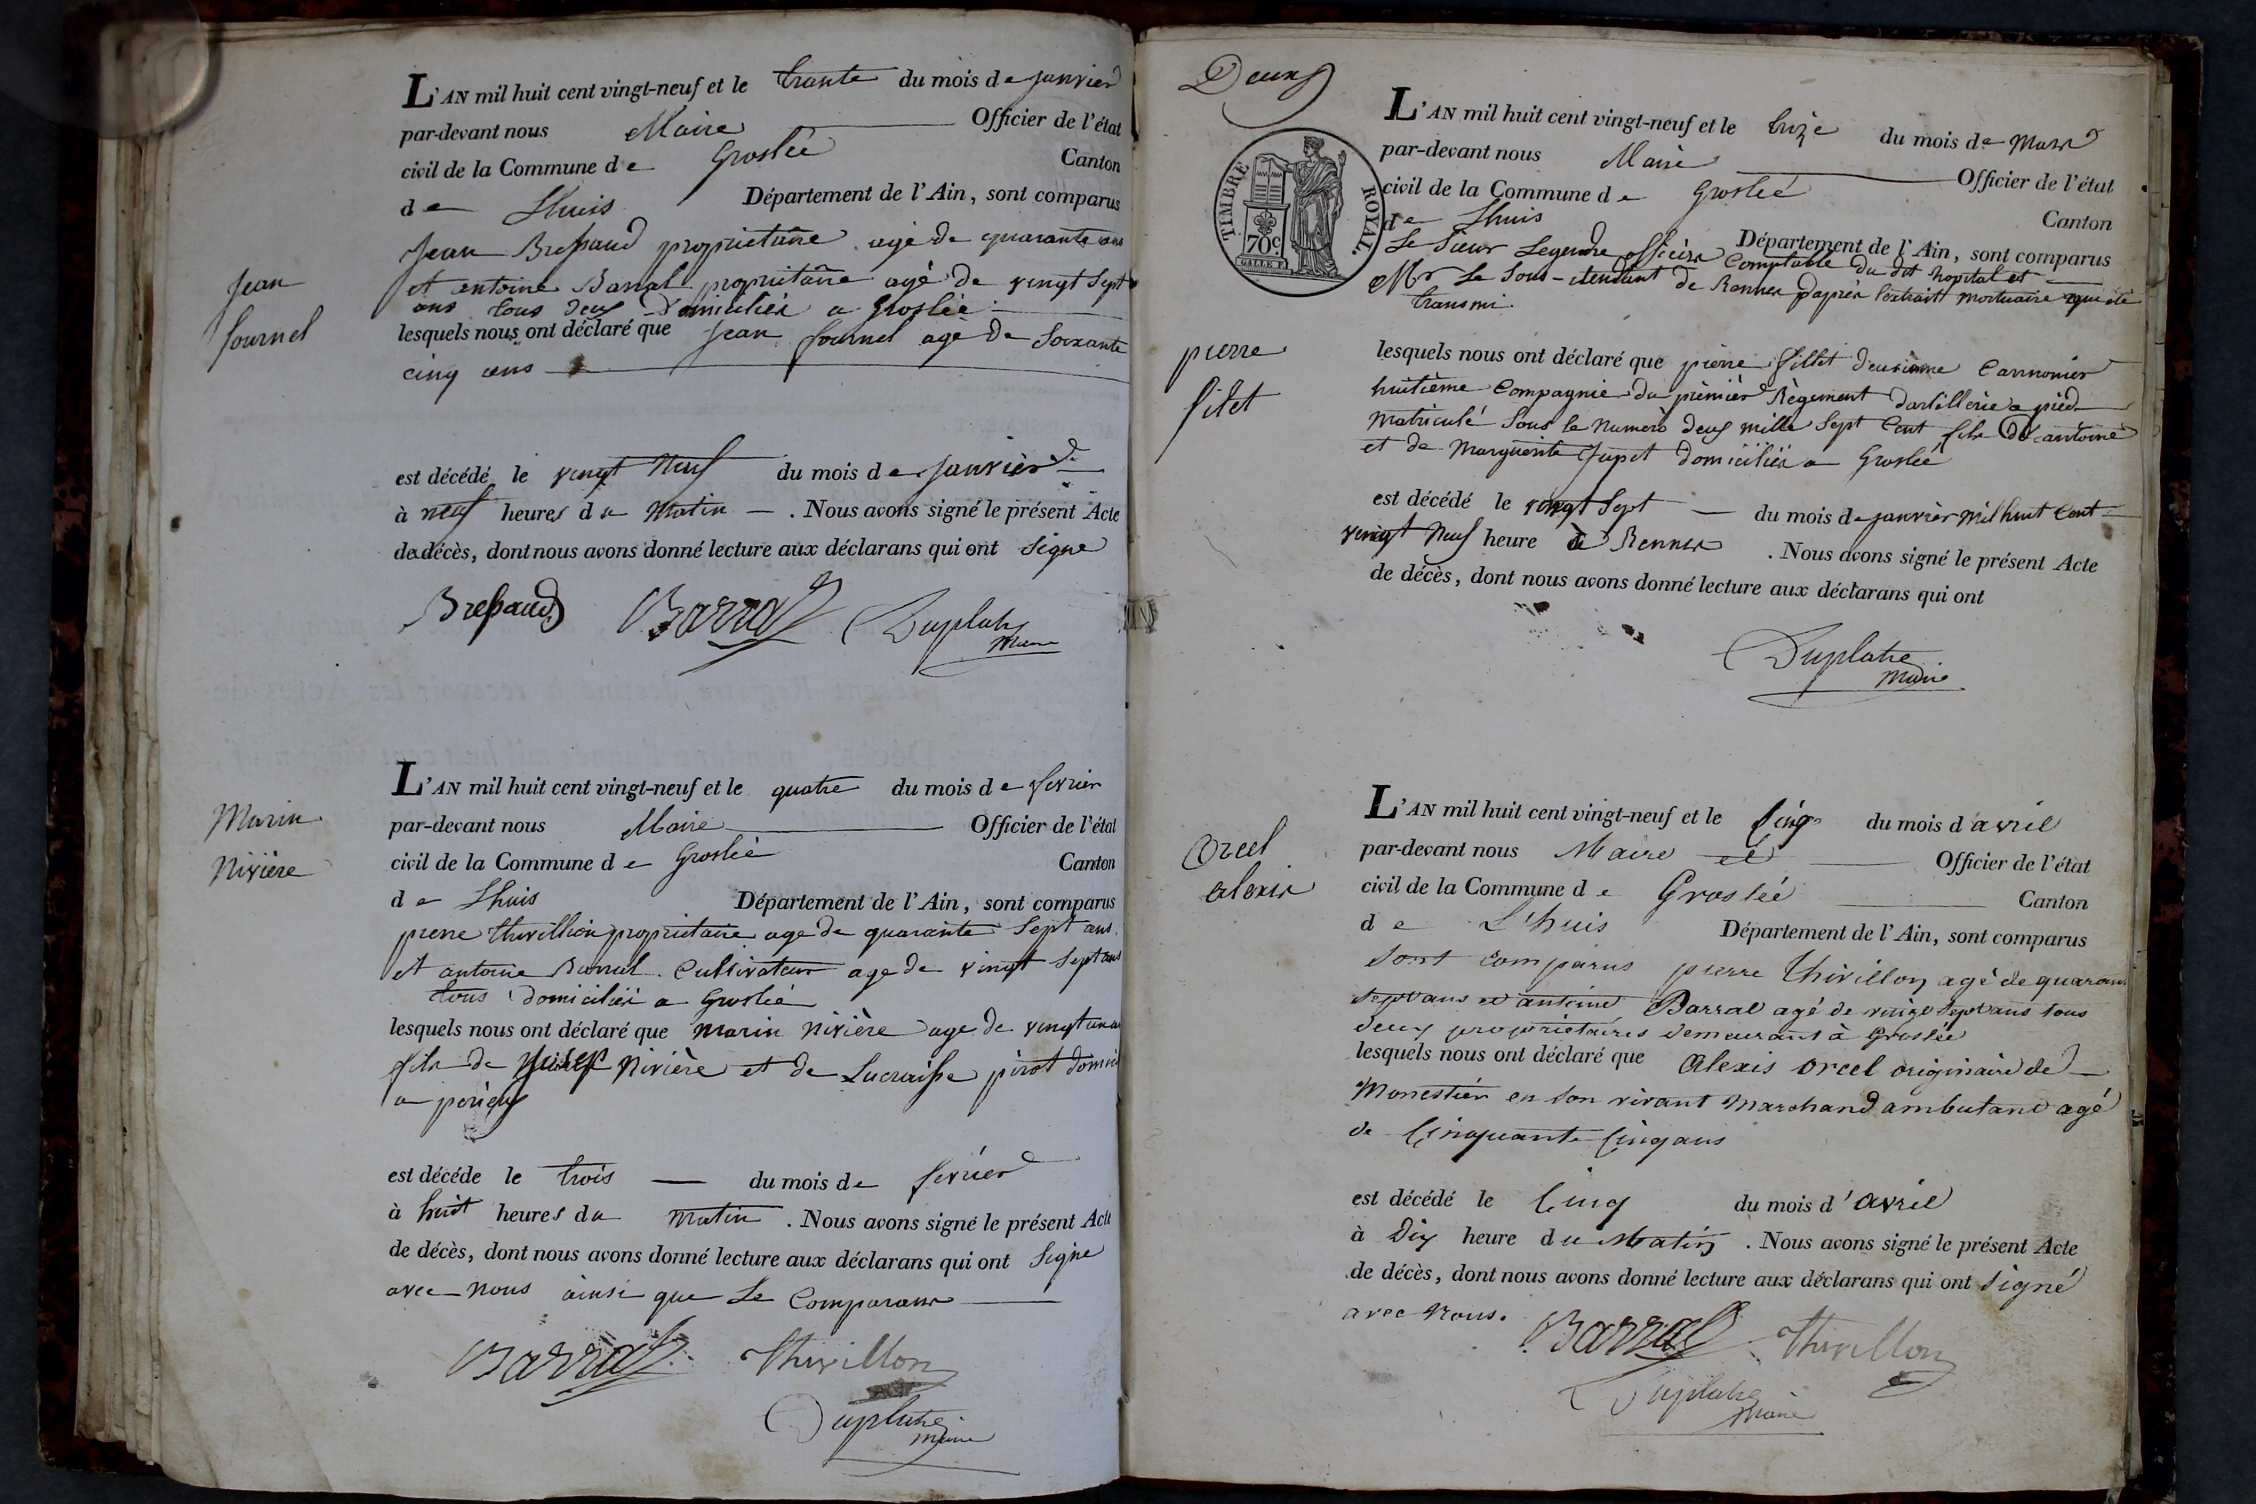 Jean
fournel
L'AN mil huit cent vingt-neuf et le trante du mois de janvier
par-devant nous Maire Officier de l'état
civil de la Commune de Groslée Canton
de Lhuis Département de l'Ain, sont comparus
Jean Bressaud proprietaire agé de quarante ans
et antoine Barral proprietaire agé de vingt Sept
ans tous deux Domiciliés a Groslée
lesquels nous ont déclaré que Jean fournel agé de Soixante
cinq ans
est décédé le vingt Neuf du mois de janvier
à neuf heures du Matin . Nous avons signé le présent Acte
de décès, dont nous avons donné lecture aux déclarans qui ont Signe
Bressaud Barral Duplatre
Maire
Marin
Nivière
L'AN mil huit cent vingt-neuf et le quatre du mois de fevrier
par-devant nous Maire Officier de l'état
civil de la Commune de Groslée Canton
de Lhuis Département de l'Ain, sont comparus
pierre thivillion proprietaire age de quarante Sept ans
et antoine Barral Cultivateur age de vingt Sept ans
tous domiciliés a Groslée
lesquels nous ont déclaré que Marin Nivière age de vingt un an
fils de Nivière et de Lucraisse pirot
a
est décéde le trois du mois de fevrier
à huit heures du Matin . Nous avons signé le présent Acte
de décès, dont nous avons donné lecture aux déclarans qui ont Signe
avec nous ainsi que Le Comparans
Barral Thivillon
Duplatre
Maire
Deux
TIMBRE ROYAL.
70c.
pierre
filet
L'AN mil huit cent vingt-neuf et le trize du mois de Mars
par-devant nous Maire Officier de l'état
civil de la Commune de Groslée Canton
de Lhuis Département de l'Ain, sont comparus
Le Sieur Legendre officier Comptable du dit hopital et
Mr Le Sous-itendant de Rennes d'après l'extrait mortuaire
transmi
lesquels nous ont déclaré que pierre fillet deuxième Cannonier
huitième Compagnie du premier Règiment d'artillerie a pied
Matriculé Sous le Numerò deux mille Sept Cent fils De antoine
et de Marguerite Jupet domiciliés a Groslée
est décédé le vingt Sept du mois de janvier Mil huit Cent
vingt Neuf heure à Rennes . Nous avons signé le présent Acte
de décès, dont nous avons donné lecture aux déclarans qui ont
Duplatre
Maire
Orcel
alexis
L'AN mil huit cent vingt-neuf et le Cinq du mois d'avril
par-devant nous Maire et Officier de l'état
civil de la Commune de Groslée Canton
de L'huis Département de l'Ain, sont comparus
Sont comparus pierre Thivillon agé de quarante
sept ans et antoine Barral agé de vingt sept ans tous
deux propriétaires demeurant à Groslée
lesquels nous ont déclaré que Alexis Orcel originaire de
Monestier en son vivant Marchand ambulant agé
de Cinquante Cinq ans
est décédé le Cinq du mois d'avril
à Dix heure du Matin . Nous avons signé le présent Acte
de décès, dont nous avons donné lecture aux déclarans qui ont signé
avec Nous.
Barral Thivillon
Duplatre
Maire